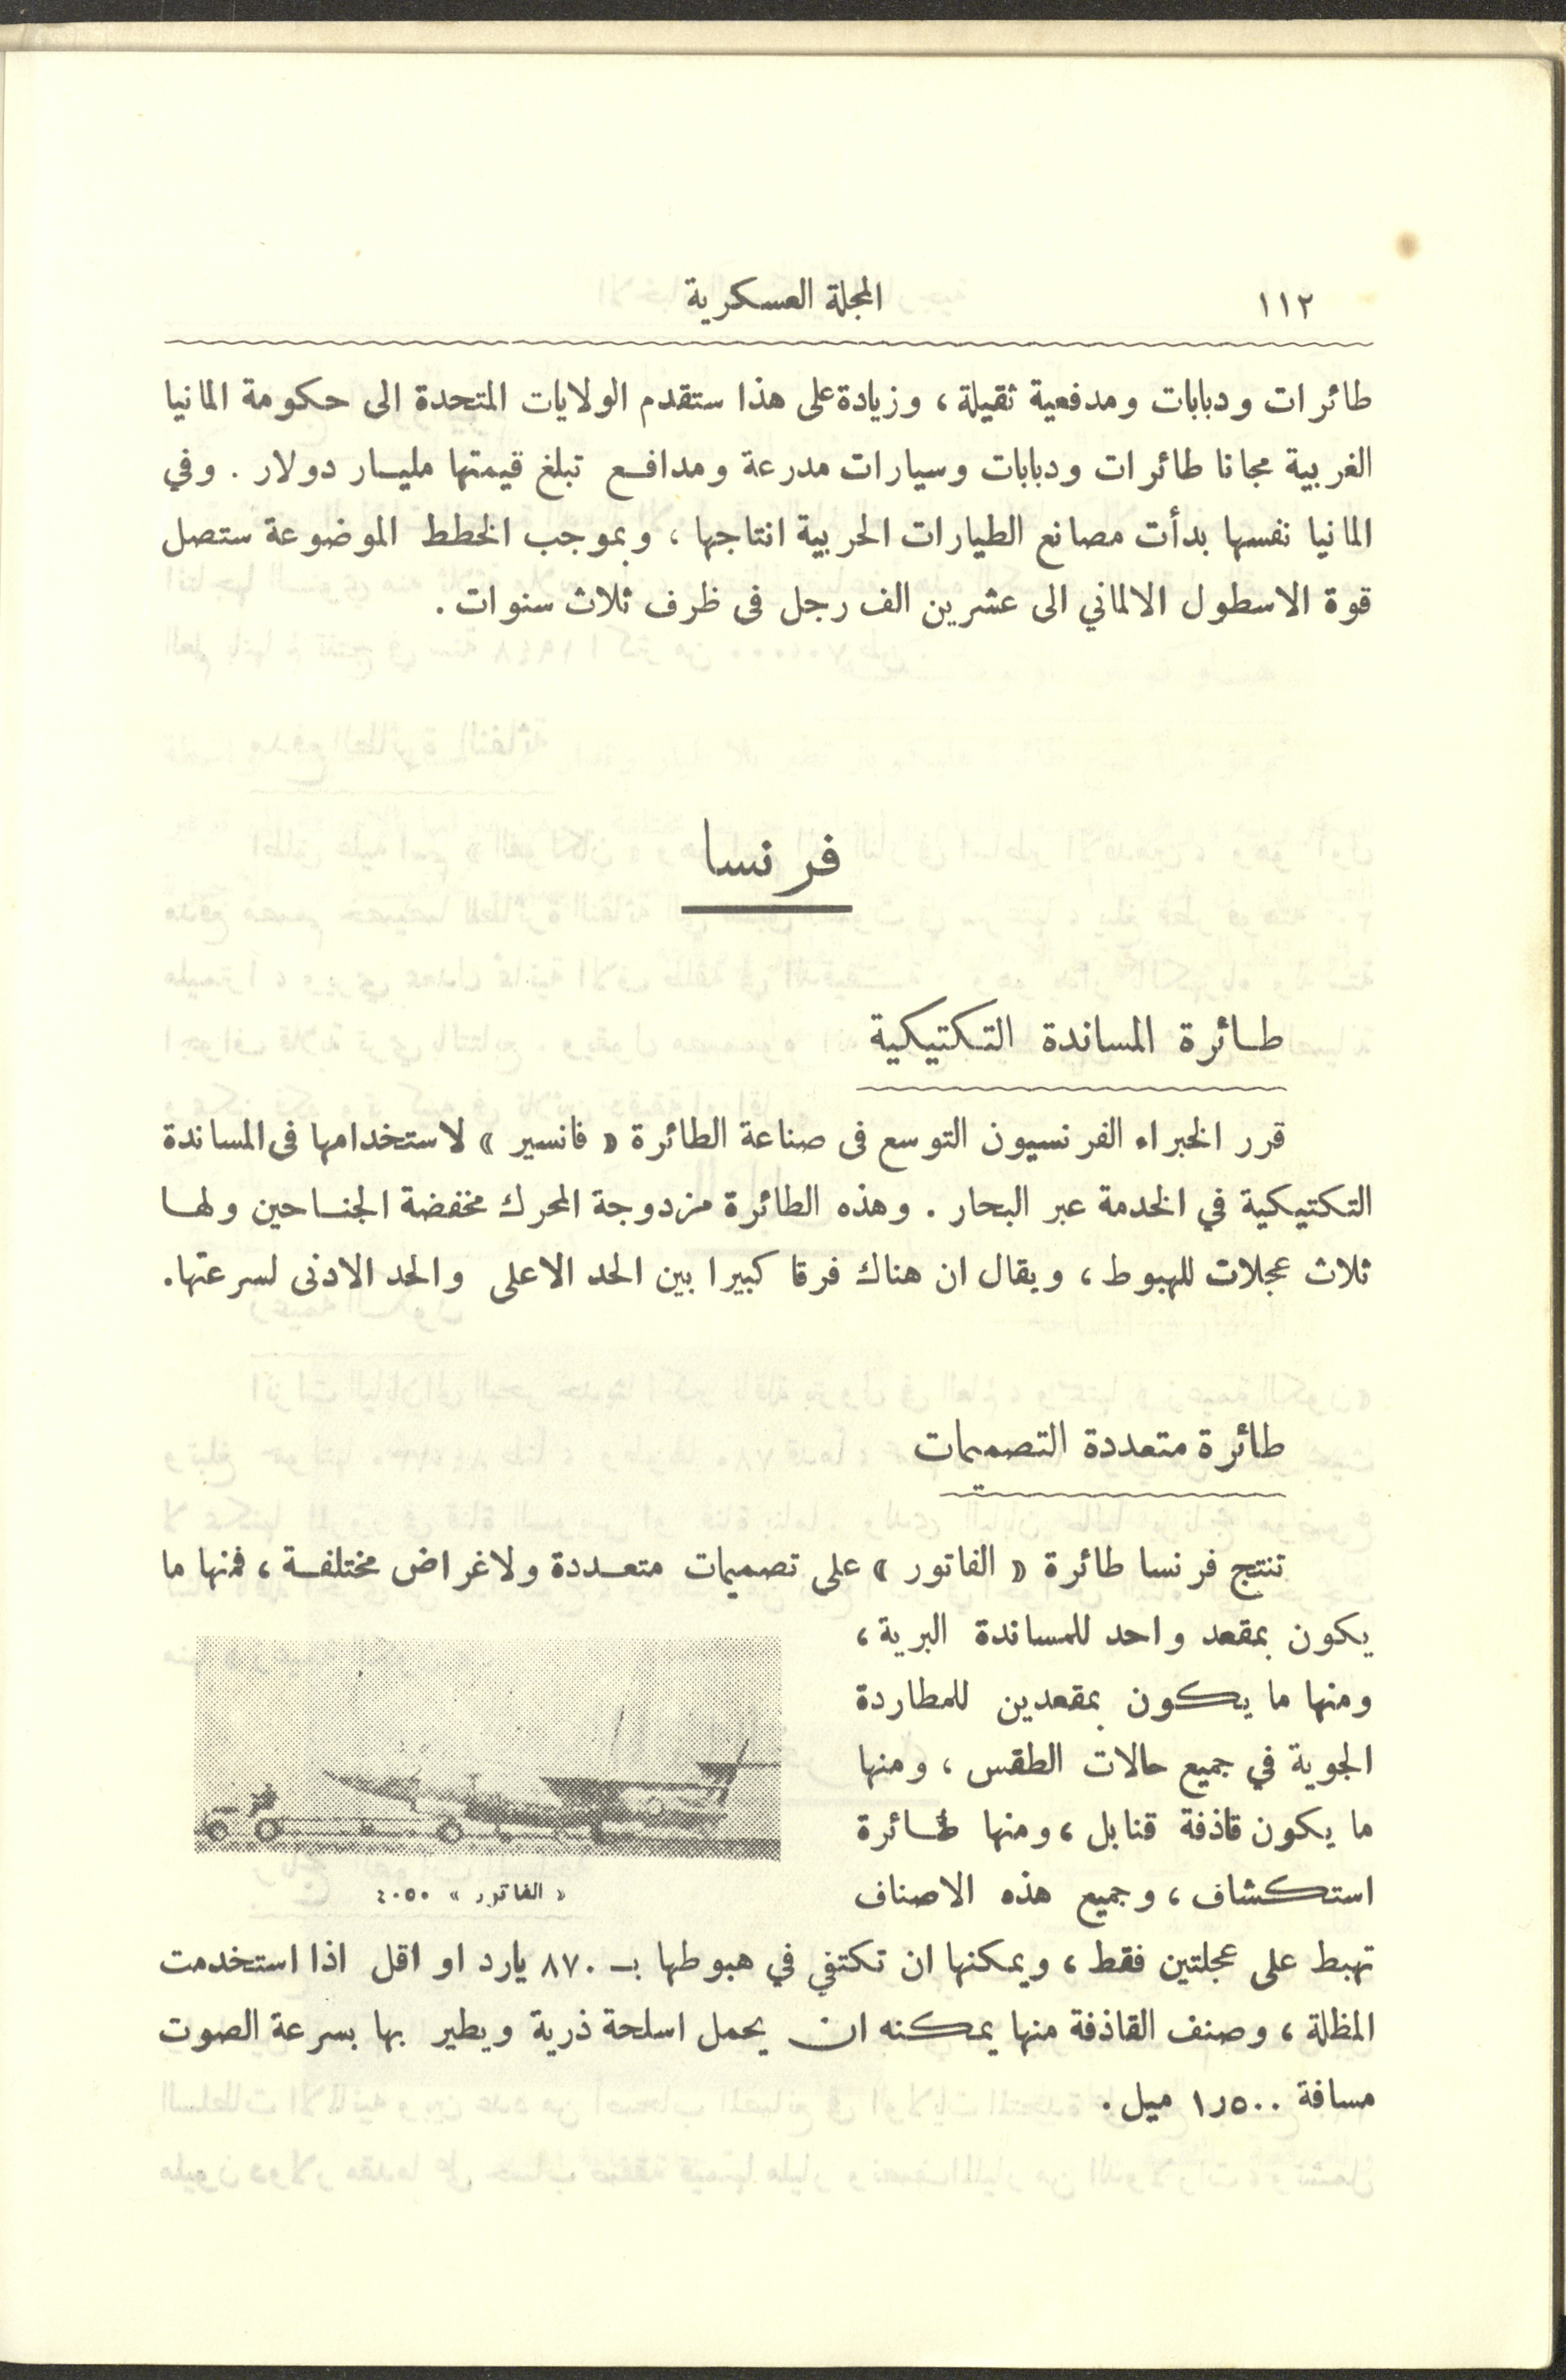 ١١٢
المجلة العسكرية
طائرات ودبابات ومدفعية ثقيلة، وزيادة على هذا ستقدم الولايات المتحدة الى حكومة المانيا
الغربية مجانا طائرات ودبابات وسيارات مدرعة ومدافع تبلغ قيمتها مليار دولار . وفي
المانيا نفسها بدأت مصانع الطيارات الحربية انتاجها ، وبموجب الخطط الموضوعة ستصل
قوة الاسطول الالماني الى عشرين الف رجل فى ظرف ثلاث سنوات .
فرنسا
طائرة المساندة التكتيكية
قرر الخبراء الفرنسيون التوسع فى صناعة الطائرة « فانسير » لاستخدامها فى المساندة
التكتيكية في الخدمة عبر البحار . وهذه الطائرة مزدوجة المحرك مخفضة الجناحين ولها
ثلاث عجلات للهبوط ، ويقال ان هناك فرقا كبيرا بين الحد الاعلى والحد الادنى لسرعتها .
طائرة متعددة التصميمات
تنتج فرنسا طائرة « الفاتور » على تصميمات متعددة ولاغراض مختلفة ، فمنها ما
يكون بمقعد واحد للمساندة البرية ،
ومنها ما يكون بمقعدين للمطاردة
الجوية في جميع حالات الطقس ، ومنها
ما يكون قاذفة قنابل ، ومنها طائرة
استكشاف ، وجميع هذه الاصناف
« الفاتور » ٤٠٥٠
تهبط على عجلتين فقط ، ويمكنها ان تكتفي في هبوطها بـ ٨٧٠ يارد او اقل اذا استخدمت
المظلة ، وصنف القاذفة منها يمكنه ان يحمل اسلحة ذرية ويطير بها بسرعة الصوت
مسافة ١٫٥٠٠ ميل .